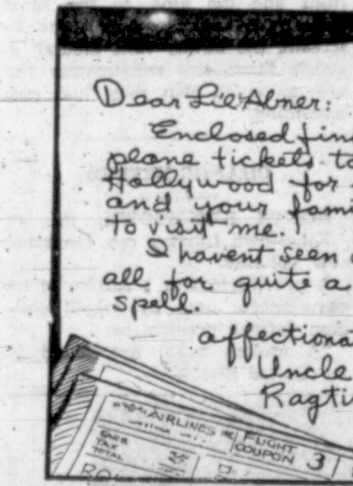 Dear Li'l Abner:
Enclosed fin
plane tickets to
Hollywood for
and your fami
to visit me.
I havent seen
all for quite a
spell.
affectiona
Uncle
Ragti
AIRLINES INC
FLIGHT
COUPON 3
FARE
TAX
TOTAL